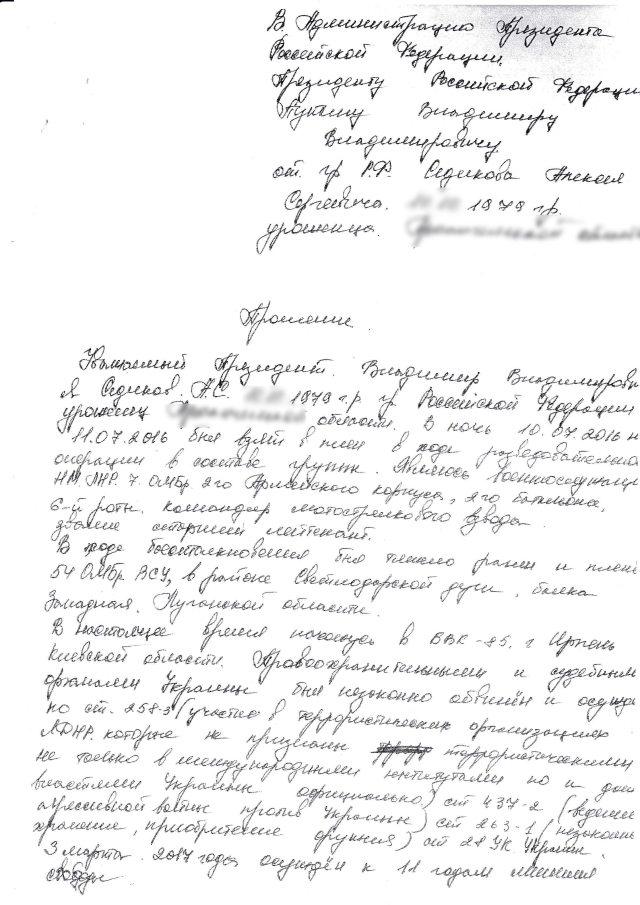 В Администрацию Президента
Российской Федерации.
Президенту Российской Федерации
Путину Владимиру
Владимировичу
от. гр Р.Ф. Седикова Алексея
Сергеевича. 1979 г.р.
уроженца.
Прошение.
Уважаемый Президент. Владимир Владимирови
Я Седиков. А.С. 1979 г.р. гр. Российской Федерации
уроженец области. В ночь 10.07.2016 н
11.07.2016 был взят в плен в ходе разведовательно
операции в составе группы. Являюсь военнослужащи
НМ ЛНР. 7. ОМБр. 2го Армейского корпуса, 2го батальона,
6-й роты. командир мотострелкового взвода
звание старший лейтенант.
В ходе боестолкновения был тяжело ранен и плене
54 ОМБр ВСУ, в районе Светлодарской дуги, балка
Западная. Луганской области.
В настоящее время нахожусь в ВВК-85. г Ирпень
Киевской области. Правоохранительными и судебными
органами Украины был незаконно обвинён и осужд
по ст. 258-3 (участие в террористических организациях
ЛДНР. которые не признаны террористическими
не только в международными институтами но и даж
властями Украины официально) ст 437-2 (ведение
агрессивной войны против Украины) ст 263-1 (незаконн
хранение, приобритение оружия) ст 28 УК Украин.
3 марта. 2017 года осуждён к 11 годам лишения
свободы